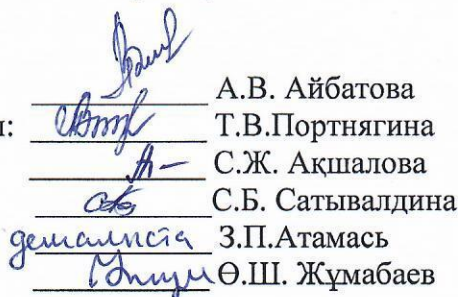 А.В. Айбатова
и: Т.В.Портнягина
С.Ж. Ақшалова
С.Б. Сатывалдина
демалыста З.П.Атамась
Ө.Ш. Жұмабаев